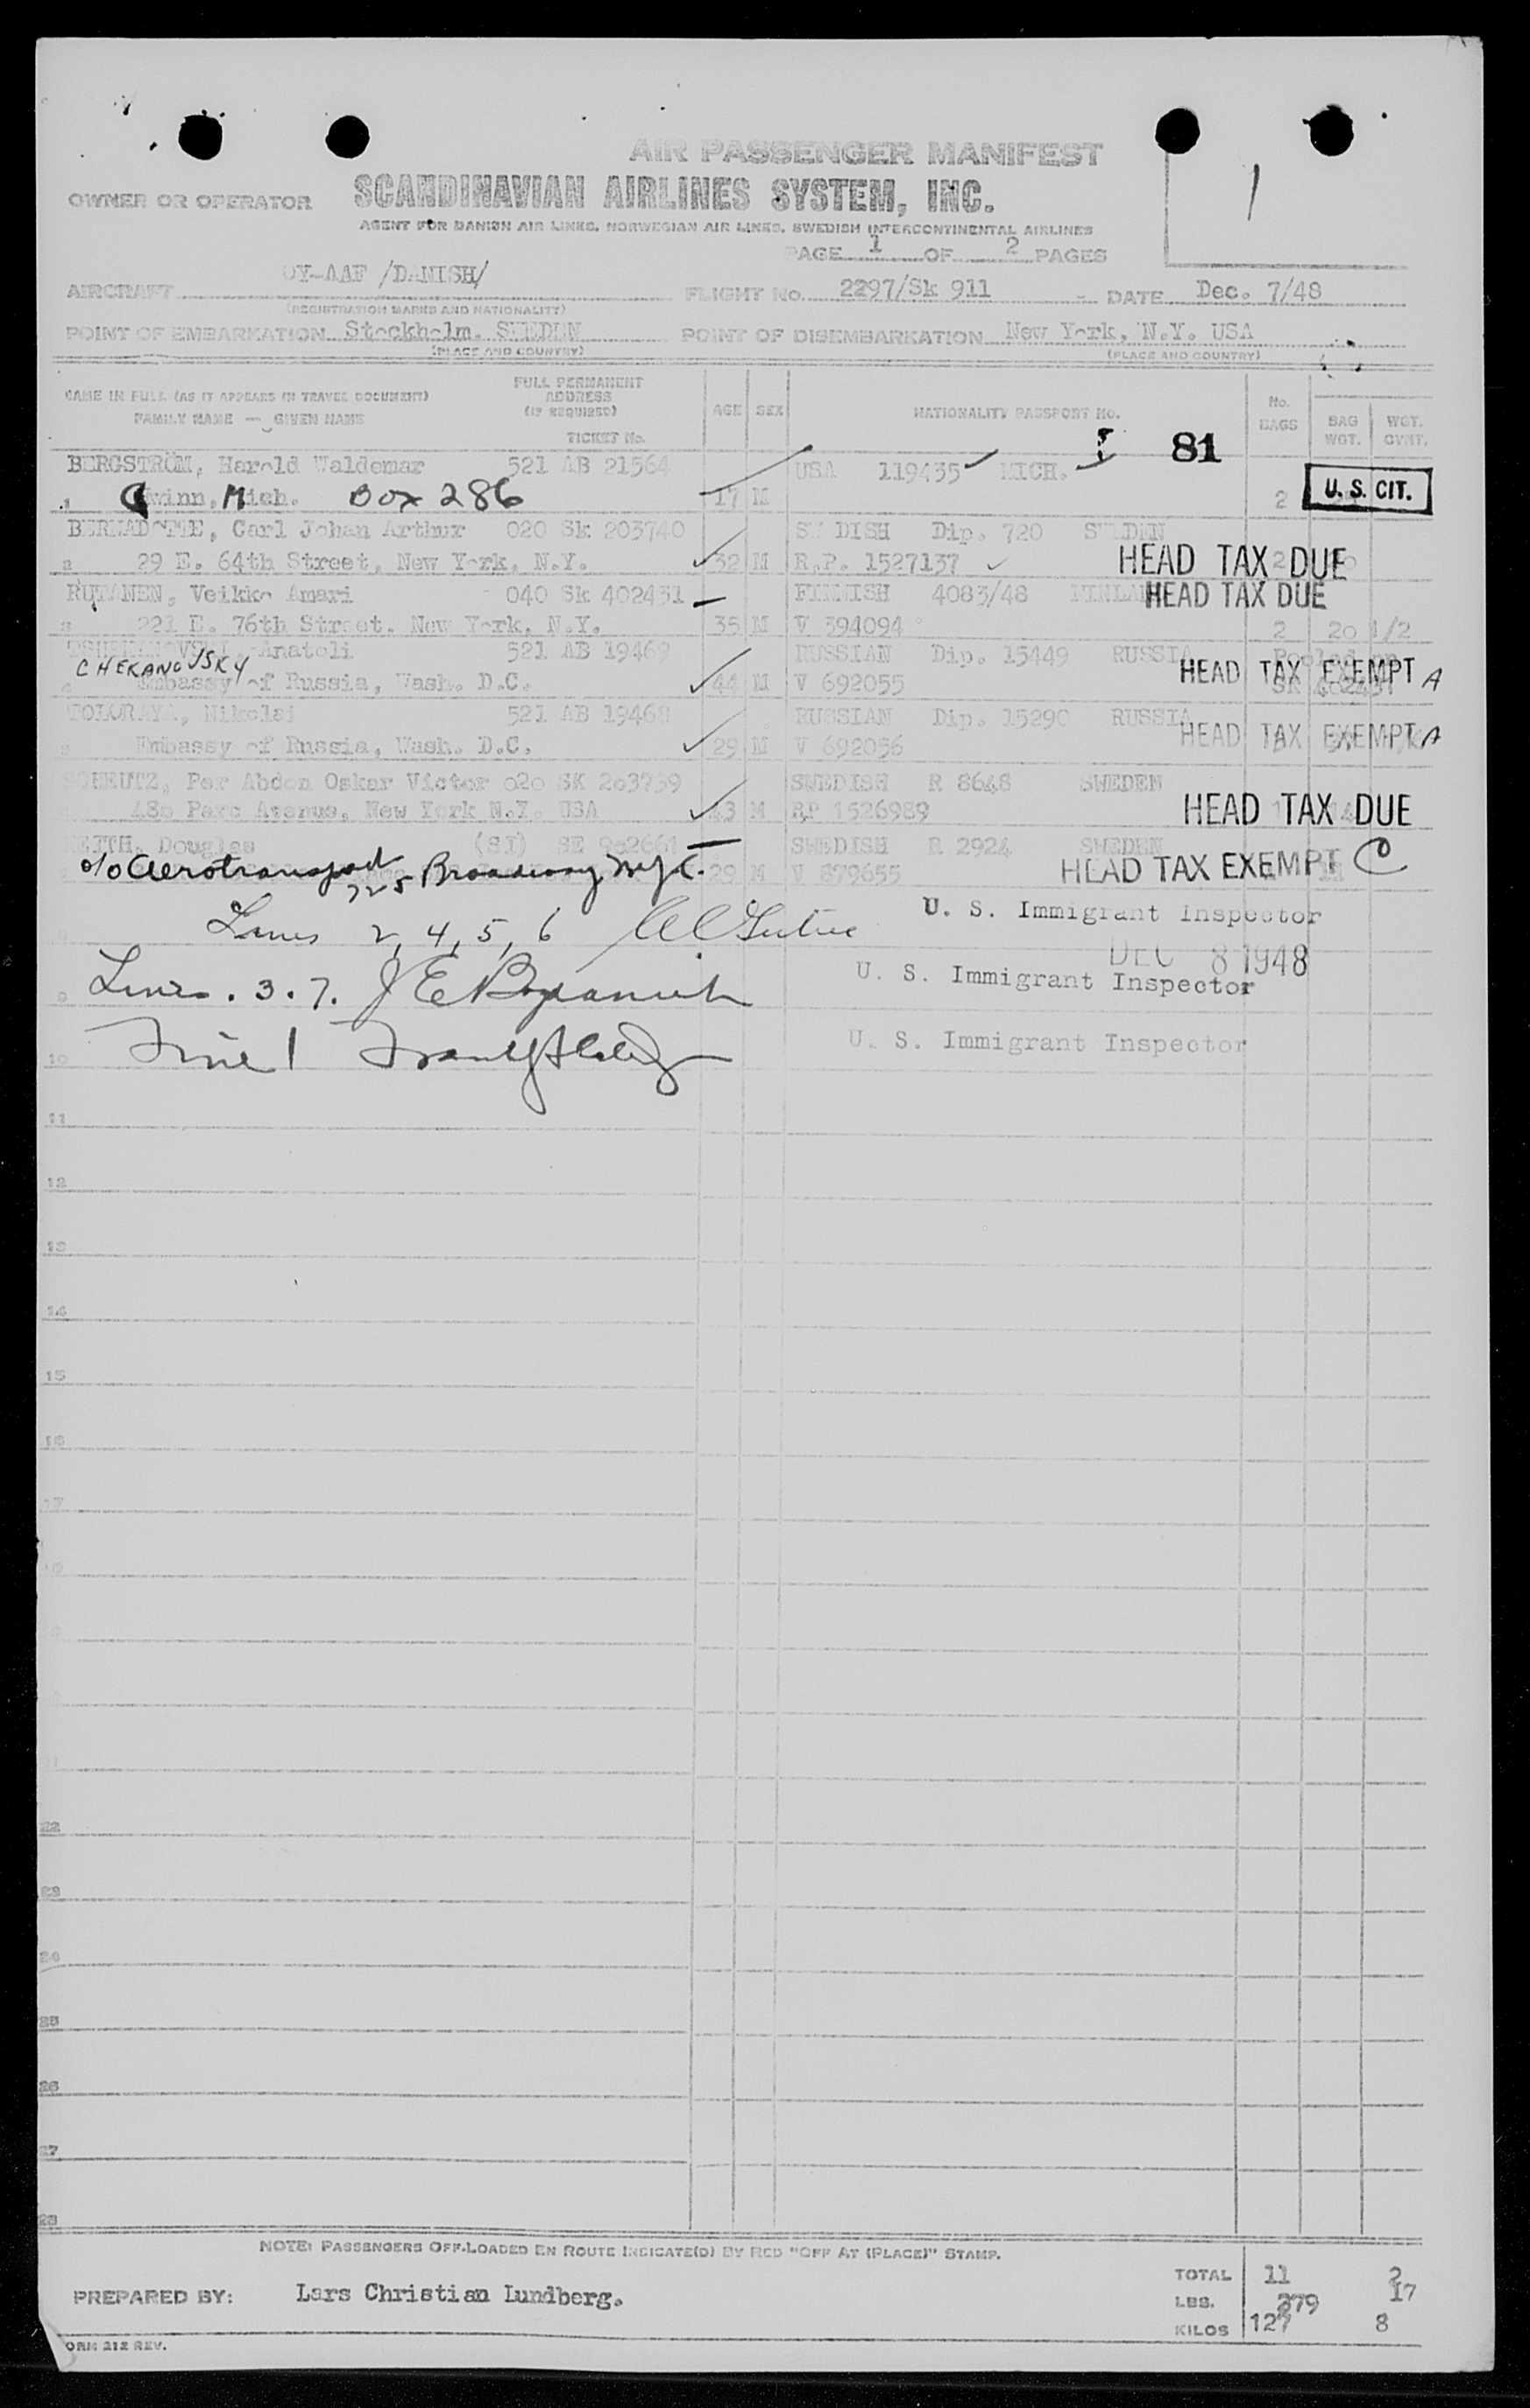 AIR PASSENGER MANIFEST
OWNER OR OPERATOR SCANDINAVIAN AIRLINES SYSTEM, INC.
AGENT FOR DANISH AIR LINES, NORWEGIAN AIR LINES, SWEDISH INTERCONTINENTAL AIRLINES
1
PAGE 1 OF 2 PAGES
AIRCRAFT OY-AAF /DANISH/ FLIGHT No. 2297/Sk 911 DATE Dec. 7/48
(REGISTRATION MARKS AND NATIONALITY)
POINT OF EMBARKATION Stockholm. SWEDEN POINT OF DISEMBARKATION New York, N.Y. USA
(PLACE AND COUNTRY) (PLACE AND COUNTRY)
NAME IN FULL (AS IT APPEARS IN TRAVEL DOCUMENT) FAMILY NAME — GIVEN NAME
FULL PERMANENT ADDRESS (IF REQUIRED) TICKET No.
AGE SEX NATIONALITY, PASSPORT No. No. BAGS BAG WGT. WGT. OVWT.
I 81
BERGSTRÖM, Harold Waldemar 521 AB 21564 USA 119435 MICH.
1 Gwinn, Mich. Box 286 17 M 2 U. S. CIT.
BERNADOTTE, Carl Johan Arthur 020 Sk 203740 SWEDISH Dip. 720 SWEDEN
2 29 E. 64th Street, New York, N.Y. 32 M R.P. 1527137 HEAD TAX DUE 2
RUTANEN, Veikko Amari 040 Sk 402431 FINNISH 4083/48 FINLAND HEAD TAX DUE
3 221 E. 76th Street. New York, N.Y. 35 M V 394094 2 20 1/2
Anatoli 521 AB 19469 RUSSIAN Dip. 15449 RUSSIA Pooled on
CHEKANOVSKY
4 Embassy of Russia, Wash. D.C. 44 M V 692055 HEAD TAX EXEMPT A
SK 402431
TOLORAYA, Nikolai 521 AB 19468 RUSSIAN Dip. 15290 RUSSIA
5 Embassy of Russia, Wash. D.C. 29 M V 692056 HEAD TAX EXEMPT A
SCHEUTZ, Per Abdon Oskar Victor 020 SK 203739 SWEDISH R 8648 SWEDEN
480 Parc Avenue, New York N.Y. USA 43 M RP 1526989 HEAD TAX DUE
KEITH, Douglas (SI) SE 902661 SWEDISH R 2924 SWEDEN
c/o Aerotransport 225 Broadway NYC. 29 M V 879655 HEAD TAX EXEMPT C
Lines 2, 4, 5, 6 U. S. Immigrant Inspector
DEC 8 1948
9 Lines. 3. 7. U. S. Immigrant Inspector
10 Line 1 U. S. Immigrant Inspector
11
12
13
14
15
16
17
22
23
24
25
26
27
28
NOTE: PASSENGERS OFF-LOADED EN ROUTE INDICATE(D) BY RED "OFF AT (PLACE)" STAMP.
TOTAL 11 2
PREPARED BY: Lars Christian Lundberg.
LBS. 279 17
KILOS 127 8
FORM 212 REV.